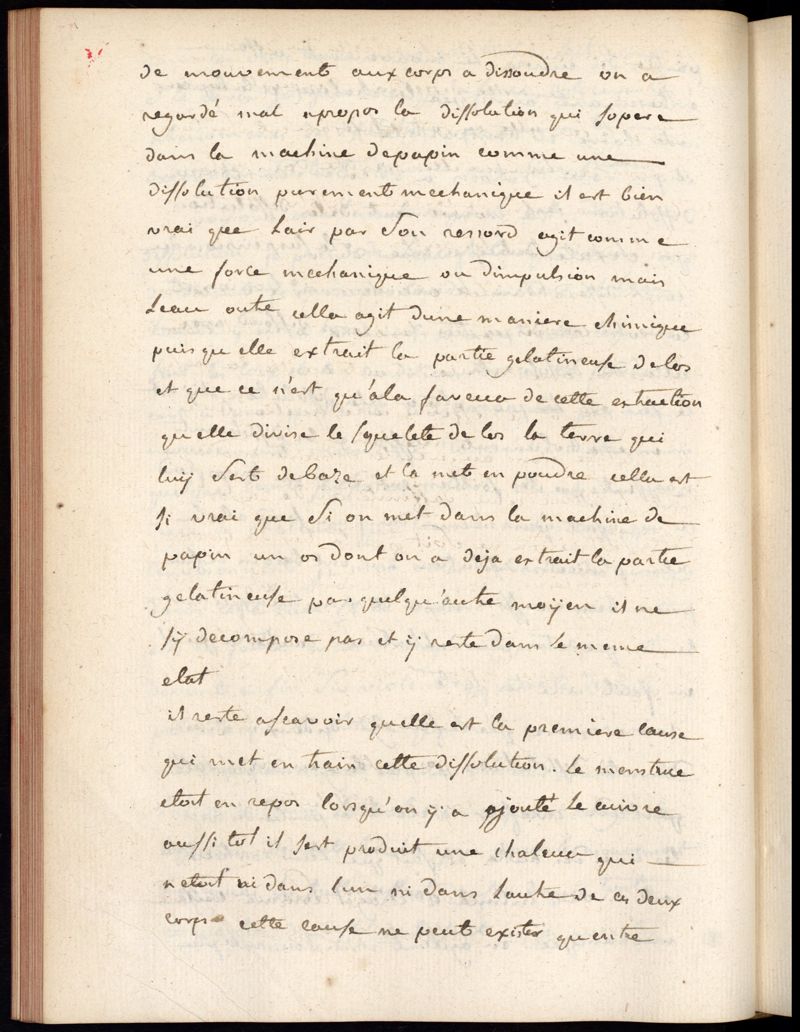 de mouvement aux corps a dissoudre on a
regardé mal apropos la dissolution qui sopere
dans la machine depapin comme une
dissolution purement mechanique il est bien
vrai que lair par son ressord agit comme
une force mechanique ou dimpulsion mais
leau outre cella agit dune maniere chimique
puisqu elle extrait la partie gelatineuse delos
et que ce n'est qu'ala faveur de cette extraction
qu elle divise le squelete de los la terre qui
luy sert debaze et la met en poudre cella est
si vrai que si on met dans la machine de
papin un os dont on a deja extrait la partie
gelatineuse par quelqu'autre moÿen il ne
sÿ decompose pas et ÿ reste dans le meme
etat
il reste ascavoir quelle est la premiere cause
qui met en train cette dissolution. le menstrue
etoit en repos lorsqu'on ÿ a ajouté le cuivre
aussitot il sest produit une chaleur qui
netoit ni dans lun ni dans lautre de ces deux
corps cette cause ne peut exister quentre